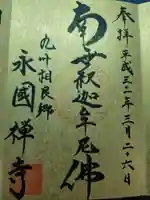 奉拝 平成三一年三月二六日
南無釈迦牟尼佛
九州相良郷
永國禅寺